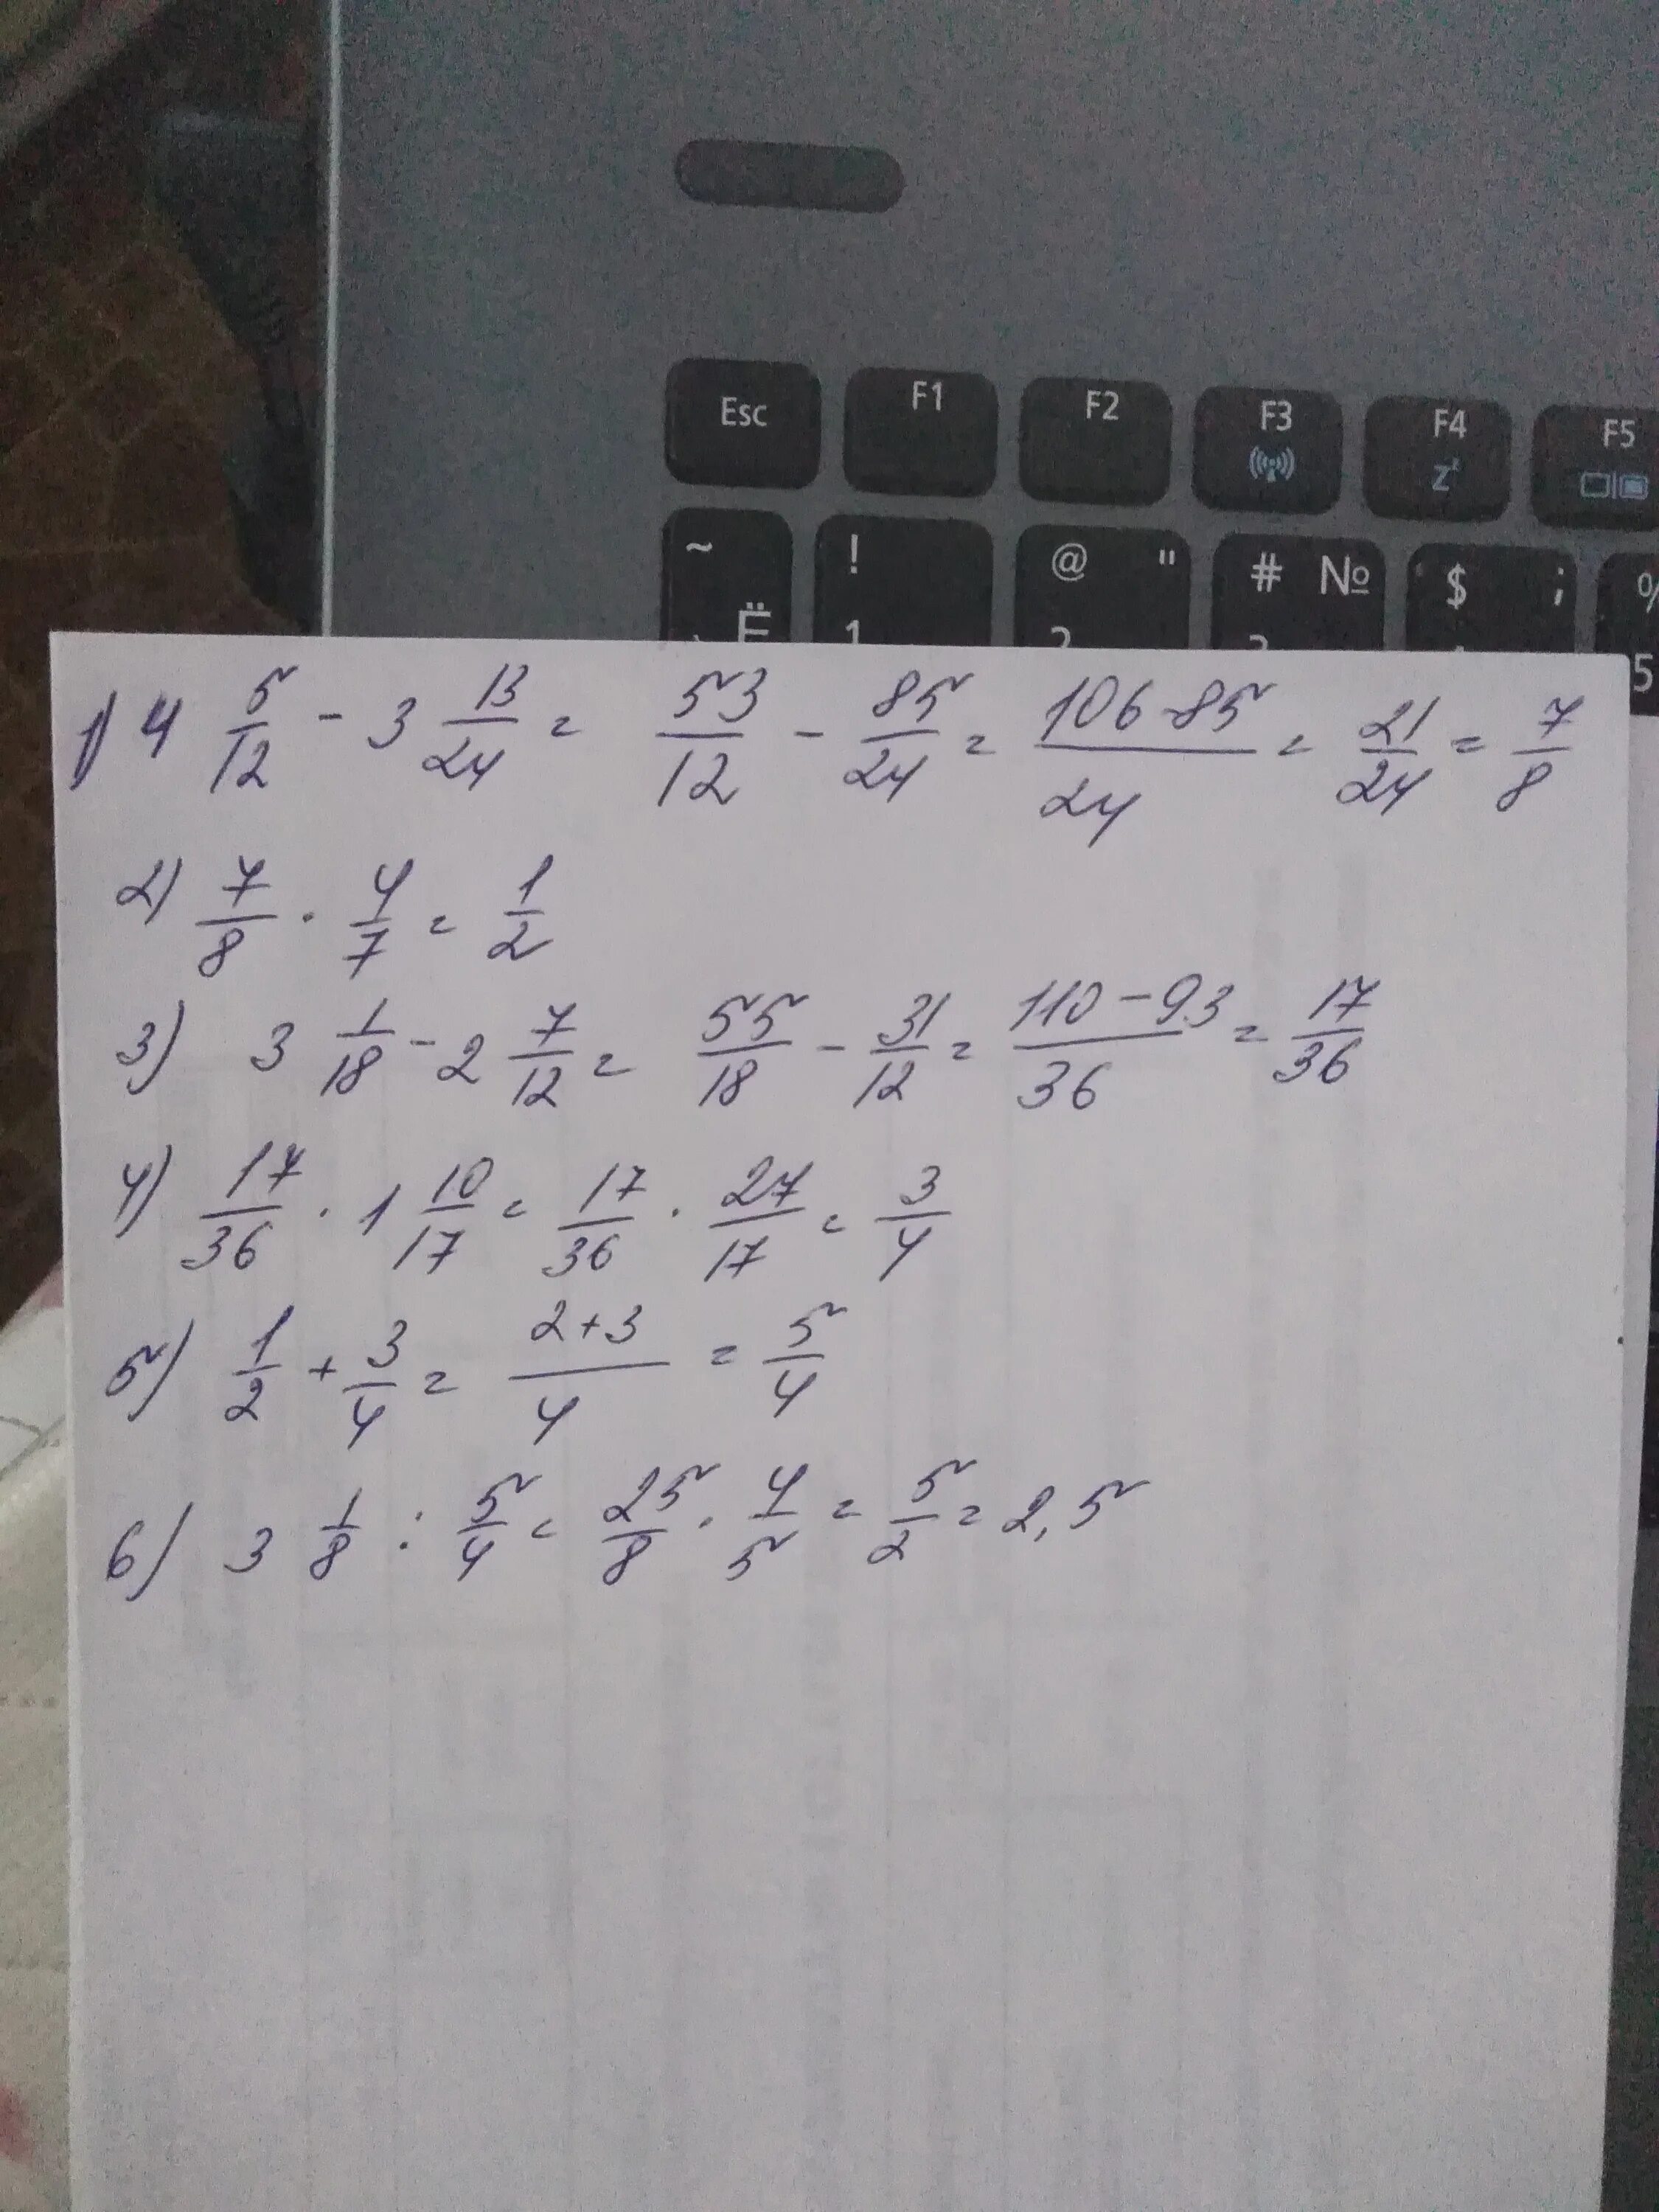 Esc F1 F2 F3 F4 F5
~ Ё ! 1 @ " 2 # № 3 $ ; 4 % 5
1) 4 5/12 - 3 13/24 = 53/12 - 85/24 = (106-85)/24 = 21/24 = 7/8
2) 7/8 · 4/7 = 1/2
3) 3 1/18 - 2 7/12 = 55/18 - 31/12 = (110-93)/36 = 17/36
4) 17/36 · 1 10/17 = 17/36 · 27/17 = 3/4
5) 1/2 + 3/4 = (2+3)/4 = 5/4
6) 3 1/8 : 5/4 = 25/8 · 4/5 = 5/2 = 2,5